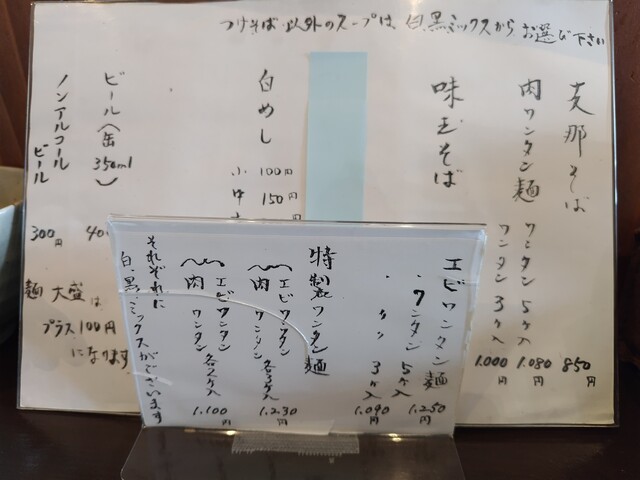 つけそば以外のスープは、白、黒、ミックスからお選び下さい
支那そば 850円
肉ワンタン麺 ワンタン5ヶ入 1.080円
ワンタン3ヶ入 1.000円
味玉そば
白めし 小 100円
中 150円
ビール(缶350ml) 40
ノンアルコールビール 300円
麺大盛は
プラス100円
になります
エビワンタン麺
・ワンタン5ヶ入 1.250円
・〃3ヶ入 1.090円
特製ワンタン麺
エビワンタン
肉ワンタン 各3ヶ入 1.230円
エビワンタン
肉ワンタン 各2ヶ入 1.100円
それぞれに
白、黒、ミックスがございます